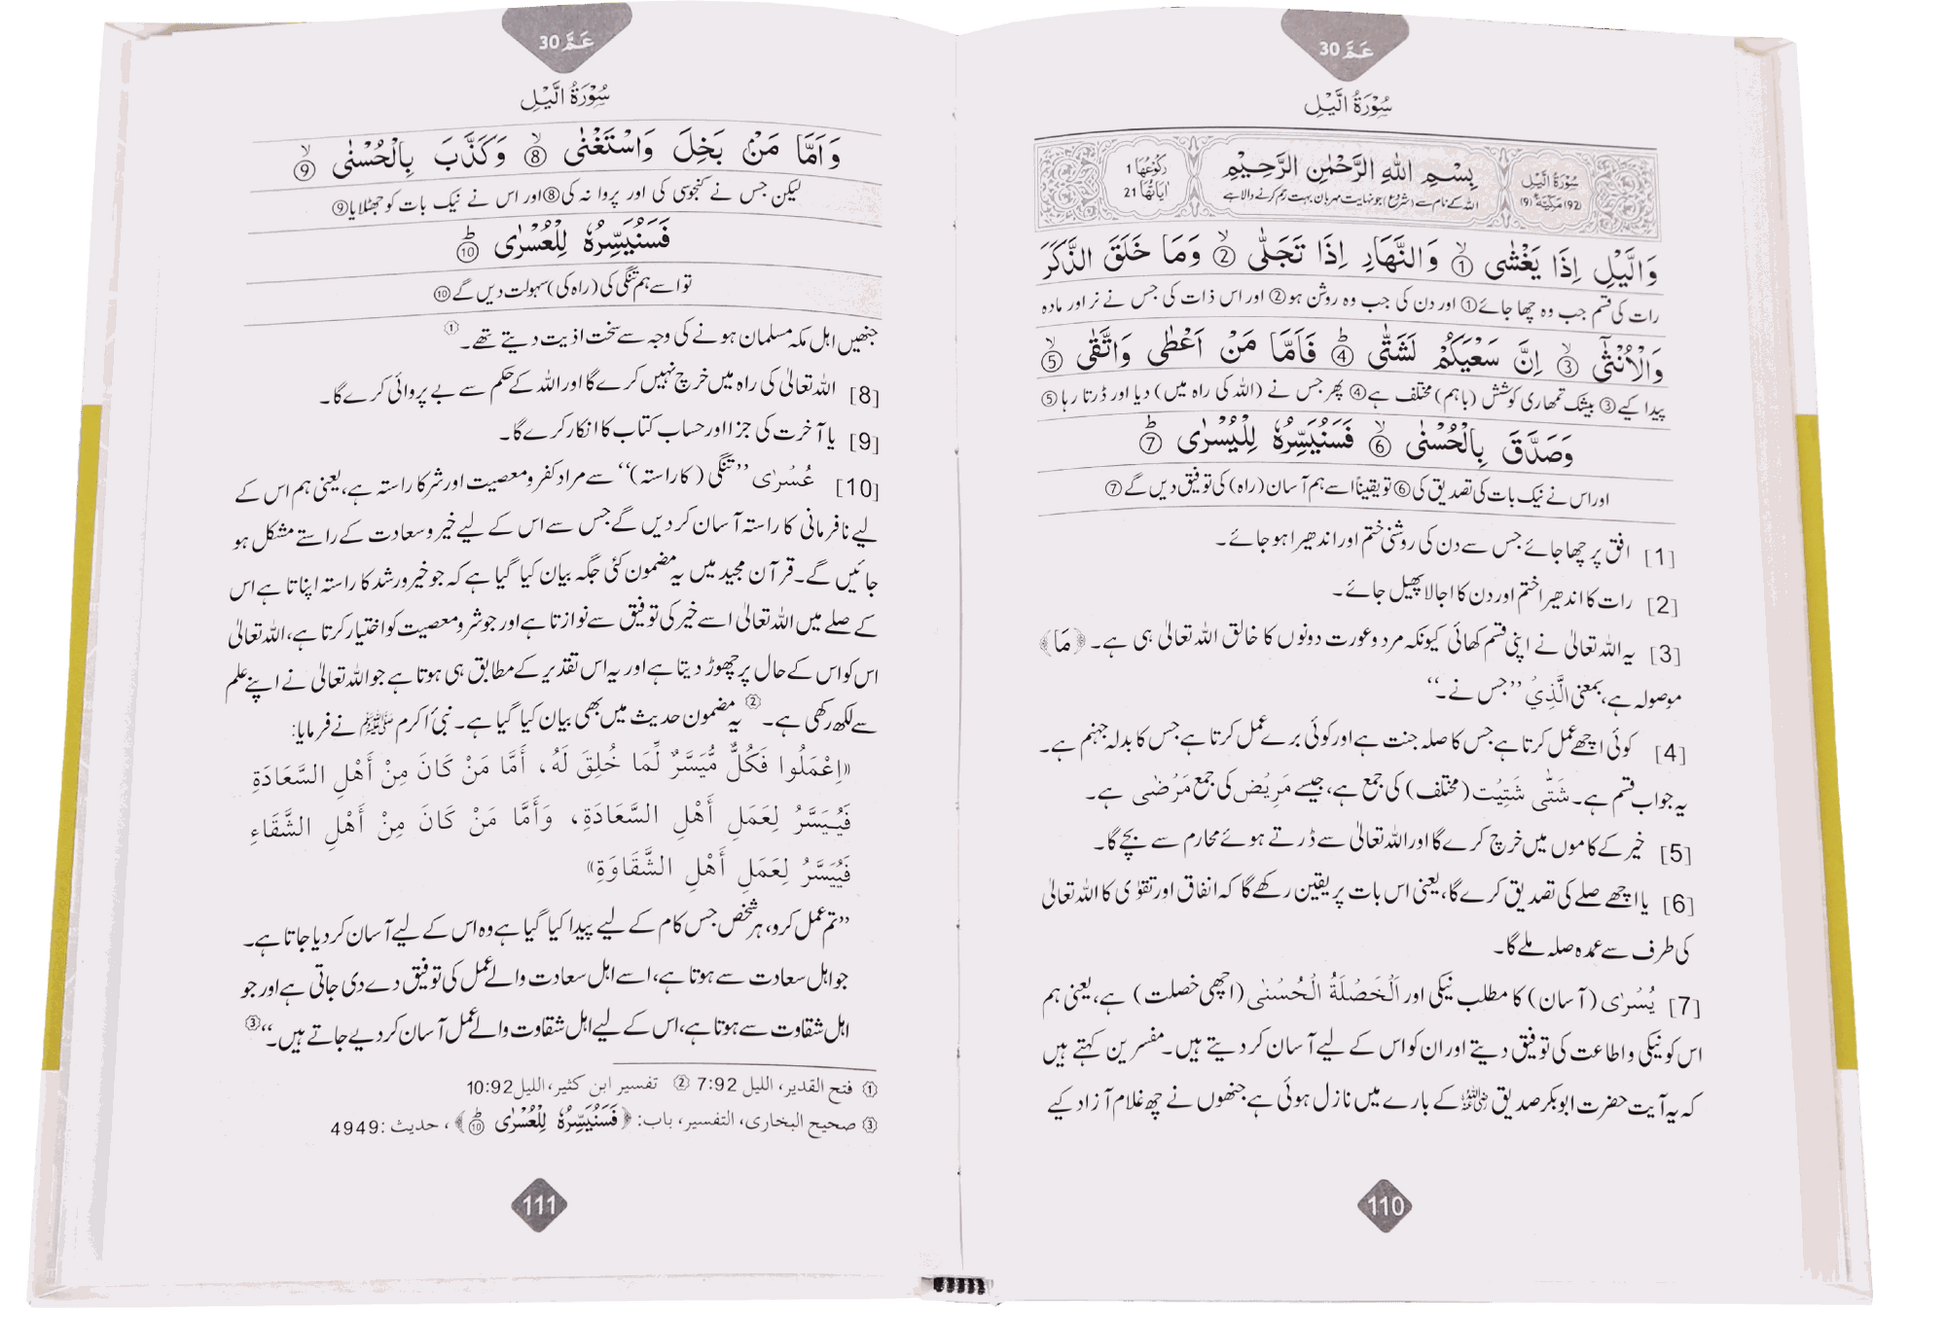 عَمَّ 30
سُوْرَةُ الَّيْلِ
سُوْرَةُ الَّيْلِ
(92) مَكِّيَّةٌ (9)
بِسْمِ اللّٰهِ الرَّحْمٰنِ الرَّحِيْمِ
اللہ کے نام سے (شروع) جو نہایت مہربان بہت رحم کرنے والا ہے
رُكُوْعُهَا 1
اٰيَاتُهَا 21
وَالَّيْلِ اِذَا يَغْشٰى ۙ① وَالنَّهَارِ اِذَا تَجَلّٰى ۙ② وَمَا خَلَقَ الذَّكَرَ
رات کی قسم جب وہ چھا جائے① اور دن کی جب وہ روشن ہو② اور اس ذات کی جس نے نر اور مادہ
وَالْاُنْثٰٓى ۙ③ اِنَّ سَعْيَكُمْ لَشَتّٰى ؕ④ فَاَمَّا مَنْ اَعْطٰى وَاتَّقٰى ۙ⑤
پیدا کیے③ بیشک تمھاری کوشش (باہم) مختلف ہے④ پھر جس نے (اللہ کی راہ میں) دیا اور ڈرتا رہا⑤
وَصَدَّقَ بِالْحُسْنٰى ۙ⑥ فَسَنُيَسِّرُهٗ لِلْيُسْرٰى ؕ⑦
اور اس نے نیک بات کی تصدیق کی⑥ تو یقیناً اسے ہم آسان (راہ) کی توفیق دیں گے⑦
[1] افق پر چھا جائے جس سے دن کی روشنی ختم اور اندھیرا ہو جائے۔
[2] رات کا اندھیرا ختم اور دن کا اجالا پھیل جائے۔
[3] یہ اللہ تعالیٰ نے اپنی قسم کھائی کیونکہ مرد و عورت دونوں کا خالق اللہ تعالیٰ ہی ہے۔ ﴿مَا﴾
موصولہ ہے، بمعنی الَّذِيْ ’’جس نے۔‘‘
[4] کوئی اچھے عمل کرتا ہے جس کا صلہ جنت ہے اور کوئی برے عمل کرتا ہے جس کا بدلہ جہنم ہے۔
یہ جواب قسم ہے۔ شَتّٰى شَتِيْت (مختلف) کی جمع ہے، جیسے مَرِيْض کی جمع مَرْضٰى ہے۔
[5] خیر کے کاموں میں خرچ کرے گا اور اللہ تعالیٰ سے ڈرتے ہوئے محارم سے بچے گا۔
[6] یا اچھے صلے کی تصدیق کرے گا، یعنی اس بات پر یقین رکھے گا کہ انفاق اور تقوٰی کا اللہ تعالیٰ
کی طرف سے عمدہ صلہ ملے گا۔
[7] يُسْرٰى (آسان) کا مطلب نیکی اور اَلْخَصْلَةُ الْحُسْنٰى (اچھی خصلت) ہے، یعنی ہم
اس کو نیکی و اطاعت کی توفیق دیتے اور ان کو اس کے لیے آسان کر دیتے ہیں۔ مفسرین کہتے ہیں
کہ یہ آیت حضرت ابوبکر صدیق رضی اللہ عنہ کے بارے میں نازل ہوئی ہے جنھوں نے چھ غلام آزاد کیے
110
عَمَّ 30
سُوْرَةُ الَّيْلِ
وَاَمَّا مَنْۢ بَخِلَ وَاسْتَغْنٰى ۙ⑧ وَكَذَّبَ بِالْحُسْنٰى ۙ⑨
لیکن جس نے کنجوسی کی اور پروا نہ کی⑧ اور اس نے نیک بات کو جھٹلایا⑨
فَسَنُيَسِّرُهٗ لِلْعُسْرٰى ؕ⑩
تو اسے ہم تنگی کی (راہ کی) سہولت دیں گے⑩
جنھیں اہل مکہ مسلمان ہونے کی وجہ سے سخت اذیت دیتے تھے۔①
[8] اللہ تعالیٰ کی راہ میں خرچ نہیں کرے گا اور اللہ کے حکم سے بے پروائی کرے گا۔
[9] یا آخرت کی جزا اور حساب کتاب کا انکار کرے گا۔
[10] عُسْرٰى ’’تنگی (کا راستہ)‘‘ سے مراد کفر و معصیت اور شر کا راستہ ہے، یعنی ہم اس کے
لیے نافرمانی کا راستہ آسان کر دیں گے جس سے اس کے لیے خیر و سعادت کے راستے مشکل ہو
جائیں گے۔ قرآن مجید میں یہ مضمون کئی جگہ بیان کیا گیا ہے کہ جو خیر و رشد کا راستہ اپناتا ہے اس
کے صلے میں اللہ تعالیٰ اسے خیر کی توفیق سے نوازتا ہے اور جو شر و معصیت کو اختیار کرتا ہے، اللہ تعالیٰ
اس کو اس کے حال پر چھوڑ دیتا ہے اور یہ اس تقدیر کے مطابق ہی ہوتا ہے جو اللہ تعالیٰ نے اپنے علم
سے لکھ رکھی ہے۔② یہ مضمون حدیث میں بھی بیان کیا گیا ہے۔ نبیٔ اکرم ﷺ نے فرمایا:
«اِعْمَلُوا فَكُلٌّ مُّيَسَّرٌ لِّمَا خُلِقَ لَهُ، أَمَّا مَنْ كَانَ مِنْ أَهْلِ السَّعَادَةِ
فَيُيَسَّرُ لِعَمَلِ أَهْلِ السَّعَادَةِ، وَأَمَّا مَنْ كَانَ مِنْ أَهْلِ الشَّقَاءِ
فَيُيَسَّرُ لِعَمَلِ أَهْلِ الشَّقَاوَةِ»
’’تم عمل کرو، ہر شخص جس کام کے لیے پیدا کیا گیا ہے وہ اس کے لیے آسان کر دیا جاتا ہے۔
جو اہل سعادت سے ہوتا ہے، اسے اہل سعادت والے عمل کی توفیق دے دی جاتی ہے اور جو
اہل شقاوت سے ہوتا ہے، اس کے لیے اہل شقاوت والے عمل آسان کر دیے جاتے ہیں۔‘‘③
① فتح القدير، الليل 7:92 ② تفسير ابن كثير، الليل 10:92
③ صحيح البخاری، التفسير، باب: ﴿فَسَنُيَسِّرُهٗ لِلْعُسْرٰى ؕ⑩﴾، حديث: 4949
111